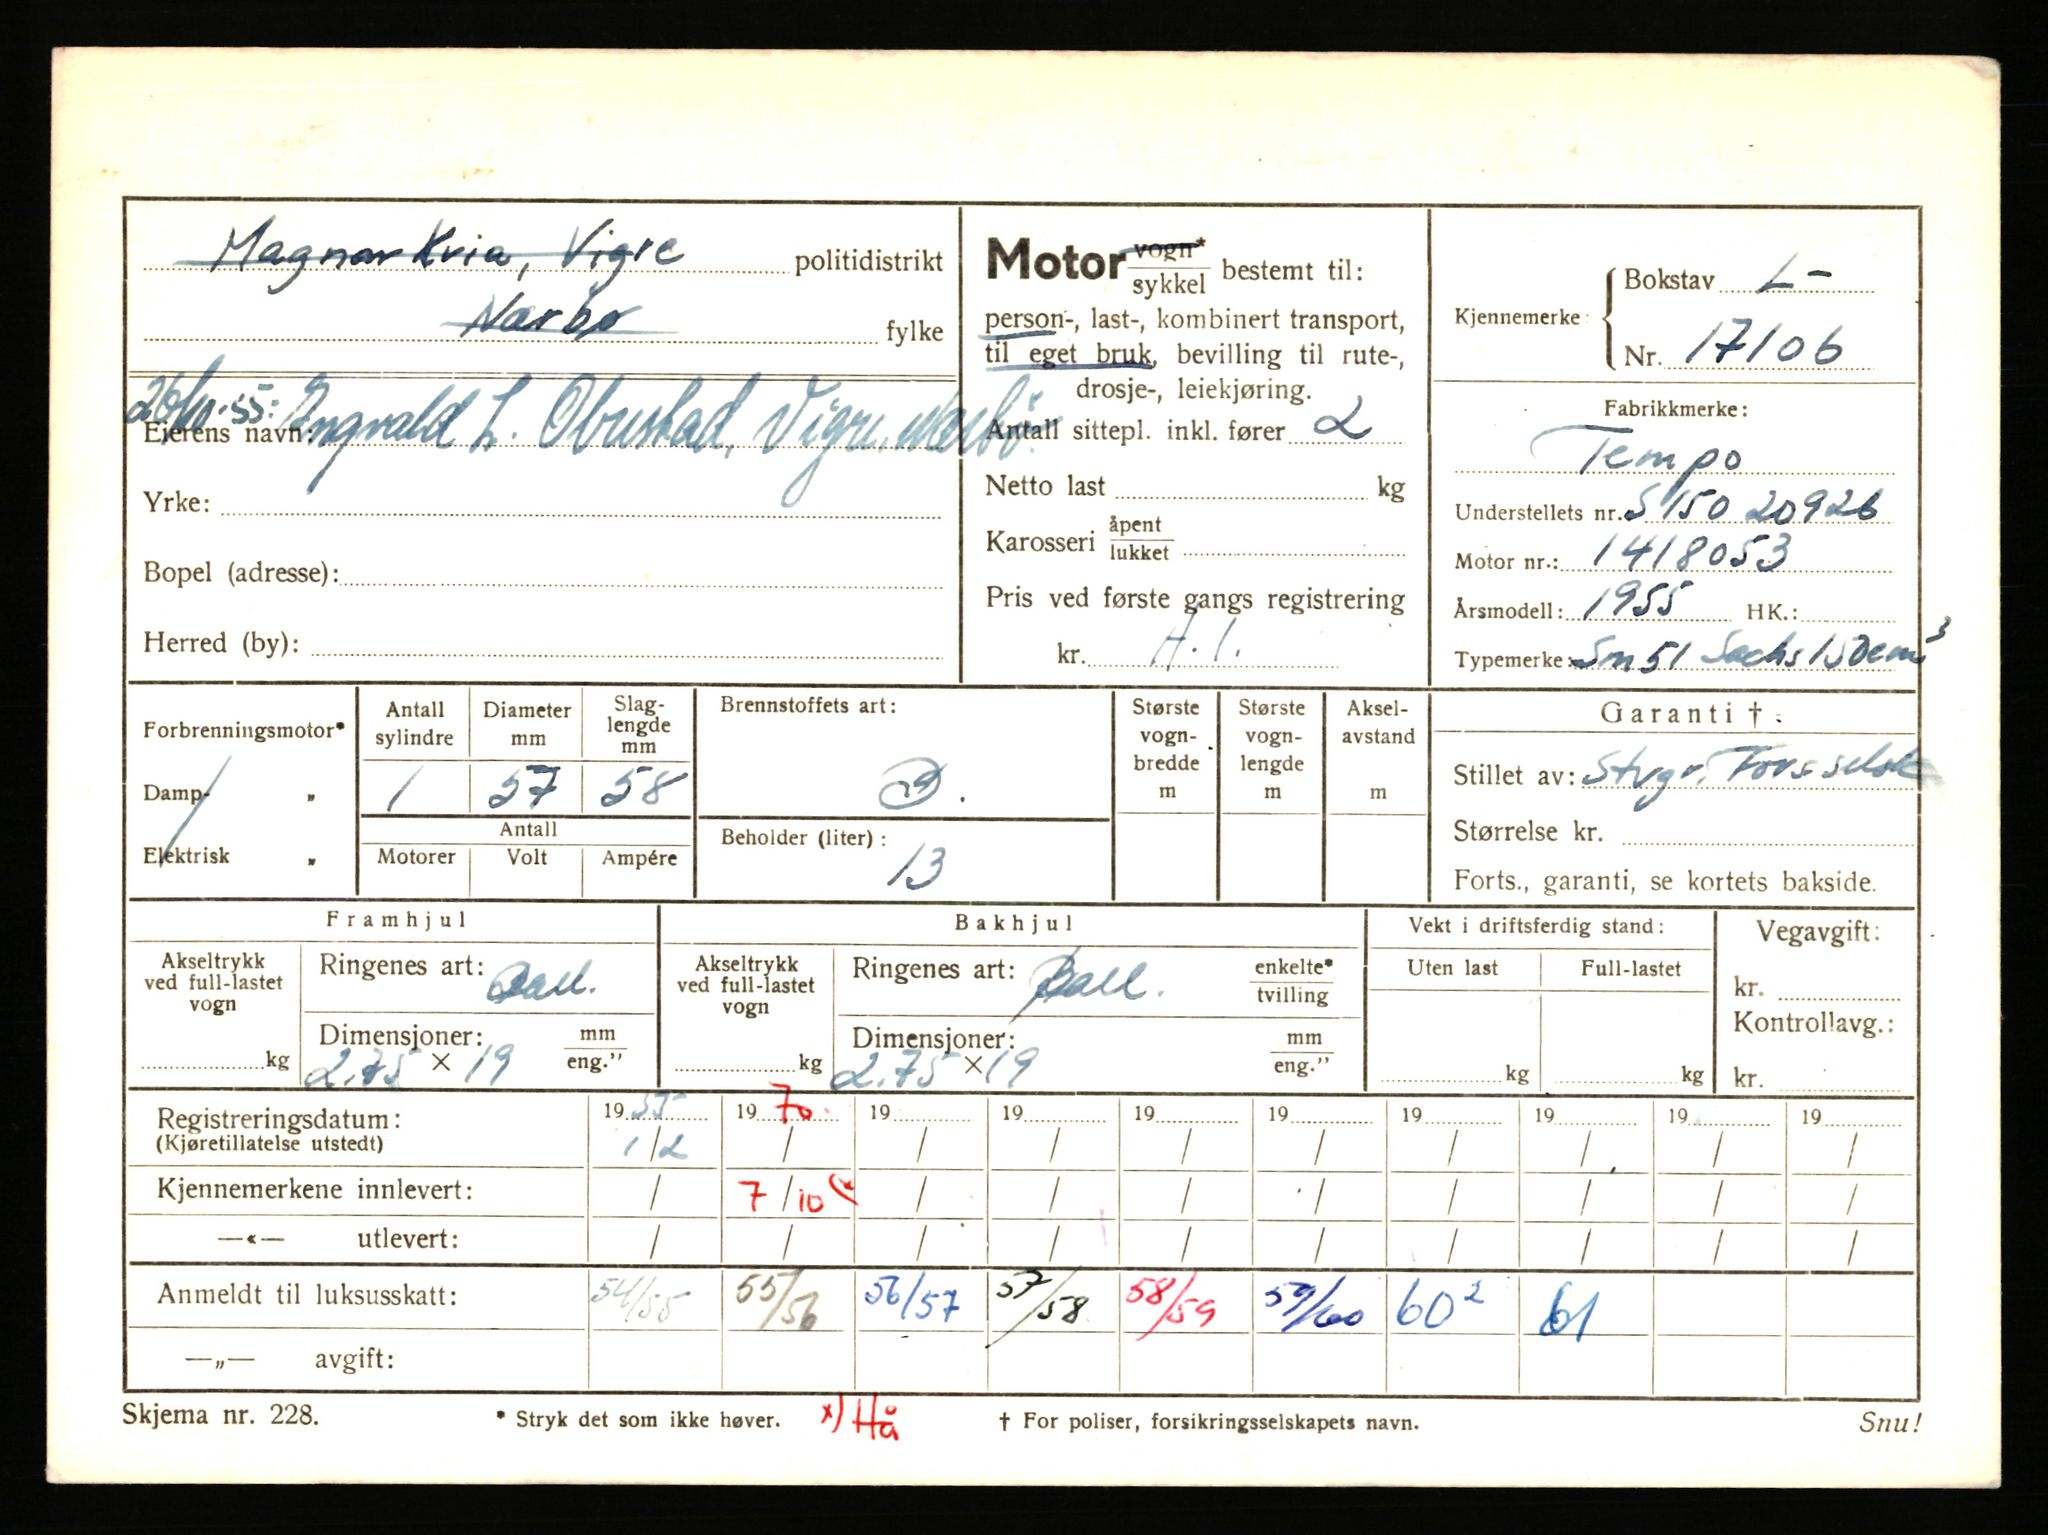 Magnar Kvia, Vigre politidistrikt
Nærbø fylke
26/10-55: Ingvald L. Obrestad, Vigre, Nærbø.
Eierens navn:
Yrke:
Bopel (adresse):
Herred (by):
Motor vogn* / sykkel bestemt til:
person-, last-, kombinert transport,
til eget bruk, bevilling til rute-,
drosje-, leiekjøring.
Antall sittepl. inkl. fører 2
Netto last kg
Karosseri åpent / lukket
Pris ved første gangs registrering
kr. A. 1.
Kjennemerke: Bokstav L-
Nr. 17106
Fabrikkmerke:
Tempo
Understellets nr. S 150 20926
Motor nr.: 1418053
Årsmodell: 1955 HK.:
Typemerke: Sm 51 Sachs 150 cm³
Forbrenningsmotor*
Damp- „
Elektrisk „
Antall sylindre 1
Diameter mm 57
Slag-lengde mm 58
Antall
Motorer Volt Ampére
Brennstoffets art:
B.
Beholder (liter):
13
Største vogn-bredde m
Største vogn-lengde m
Aksel-avstand m
Garanti †.
Stillet av: Storgr. Forsselsk
Størrelse kr.
Forts., garanti, se kortets bakside.
Framhjul
Akseltrykk ved full-lastet vogn kg
Ringenes art: Ball.
Dimensjoner: mm / eng.”
2.75 × 19
Bakhjul
Akseltrykk ved full-lastet vogn kg
Ringenes art: Ball. enkelte* / tvilling
Dimensjoner: mm / eng.”
2.75 × 19
Vekt i driftsferdig stand:
Uten last Full-lastet
kg kg
Vegavgift:
kr.
Kontrollavg.:
kr.
Registreringsdatum: 19 55 19 70. 19 19 19 19 19 19 19 19
(Kjøretillatelse utstedt) 1/2 / / / / / / / / /
Kjennemerkene innlevert: / 7/10 (x / / / / / / / /
—«— utlevert: / / / / / / / / / /
Anmeldt til luksusskatt: 54/55 55/56 56/57 57/58 58/59 59/60 60² 61
—„— avgift:
Skjema nr. 228. * Stryk det som ikke høver. x) Hå † For poliser, forsikringsselskapets navn. Snu!